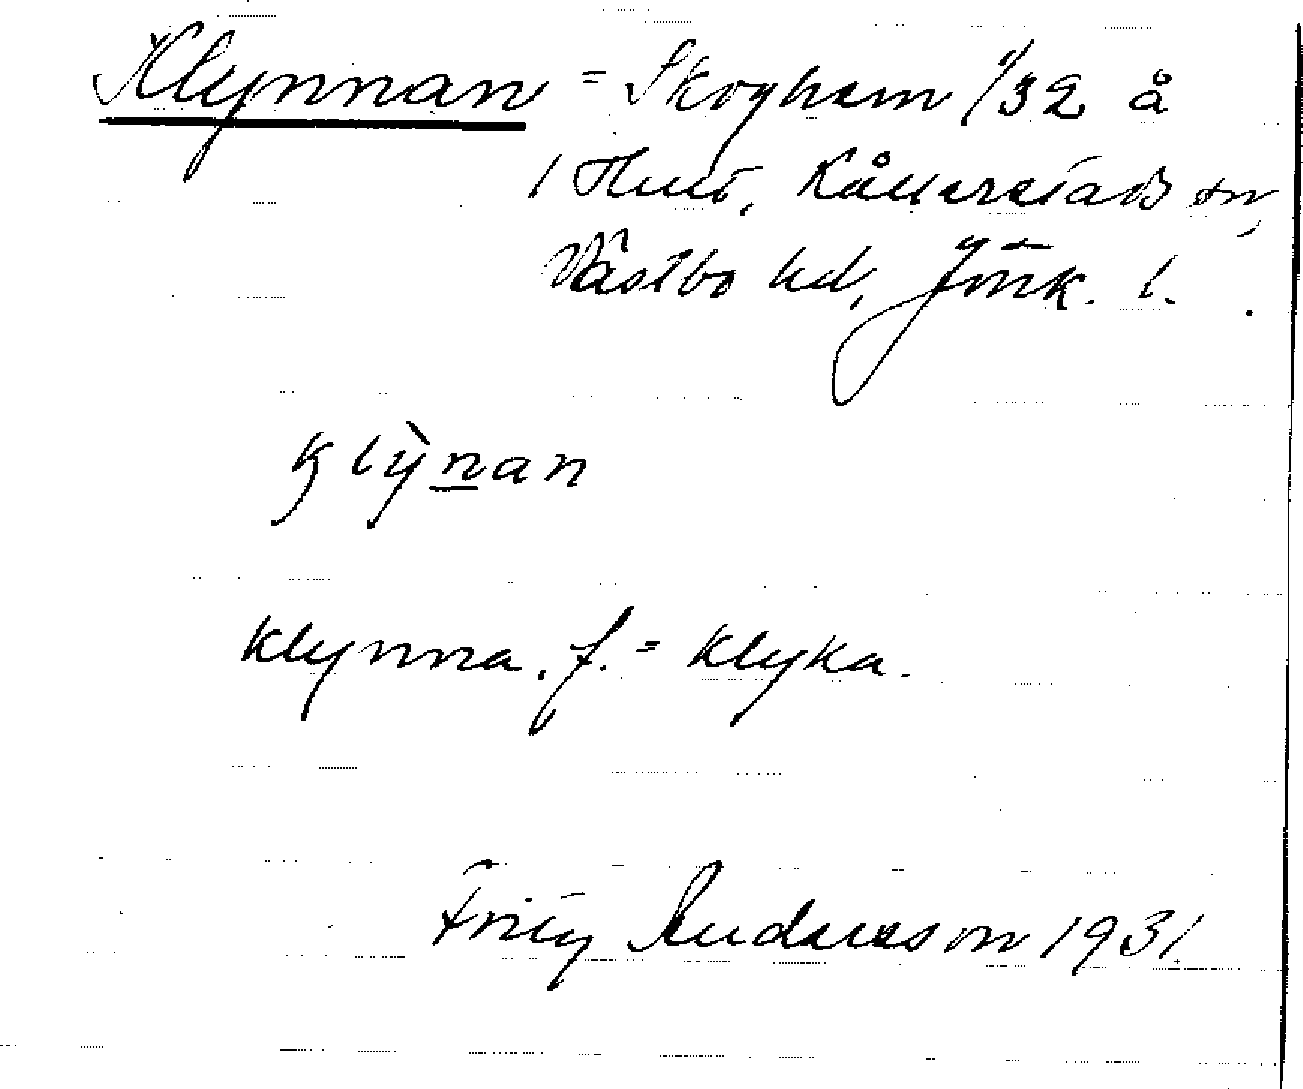 Klynnan = Skoghem 1/32 å
1 Hult, Kållerstads sn,
Västbo hd, Jönk. l.
klỳnan
klynna. f. = klyka.
Fritz Andersson 1931